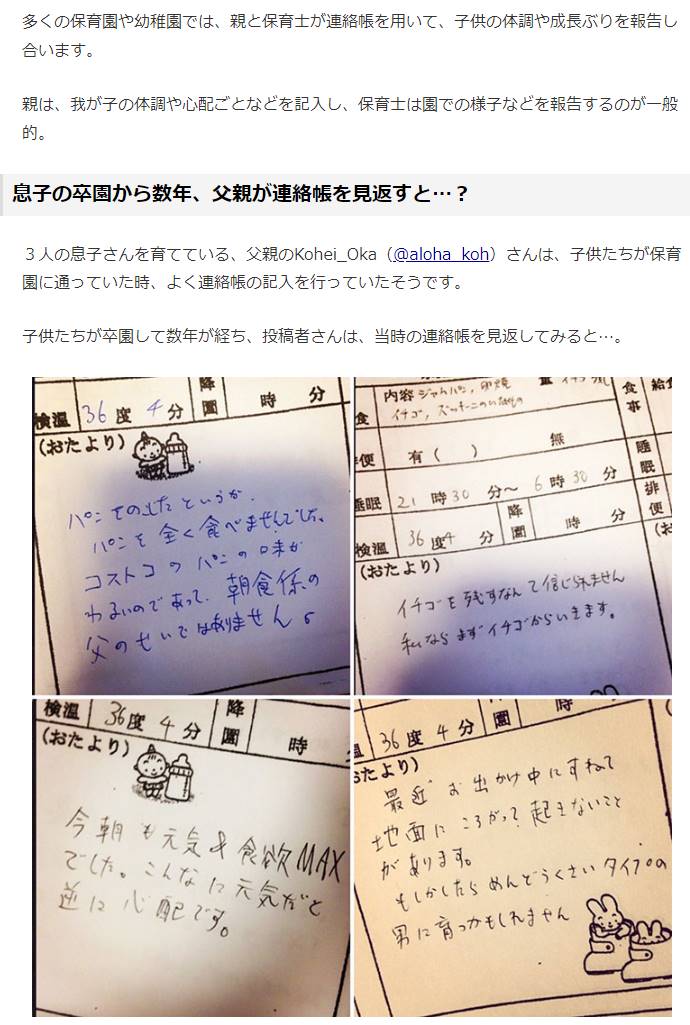 多くの保育園や幼稚園では、親と保育士が連絡帳を用いて、子供の体調や成長ぶりを報告し
合います。
親は、我が子の体調や心配ごとなどを記入し、保育士は園での様子などを報告するのが一般
的。
息子の卒園から数年、父親が連絡帳を見返すと…？
３人の息子さんを育てている、父親のKohei_Oka（@aloha_koh）さんは、子供たちが保育
園に通っていた時、よく連絡帳の記入を行っていたそうです。
子供たちが卒園して数年が経ち、投稿者さんは、当時の連絡帳を見返してみると…。
検温 36度 4分 降園 時 分
(おたより)
パンを全く食べませんでした。
コストコのパンの味が
わるいのであって、朝食係の
父のせいではありません。
内容 ジャムパン，卵焼
イチゴ，ズッキーニの
食事
便 有（ ） 無
睡眠 21時30分～6時30分
睡眠
排便
検温 36度4分 降園 時 分
(おたより)
イチゴを残すなんて信じられません
私ならまずイチゴからいきます。
検温 36度 4分 降園 時
(おたより)
今朝も元気&食欲MAX
でした。こんなに元気だと
逆に心配です。
36度 4分 降園 時
おたより)
最近お出かけ中にすねて
地面にころがって起きないこと
があります。
もしかしたらめんどうくさいタイプの
男に育つかもしれません